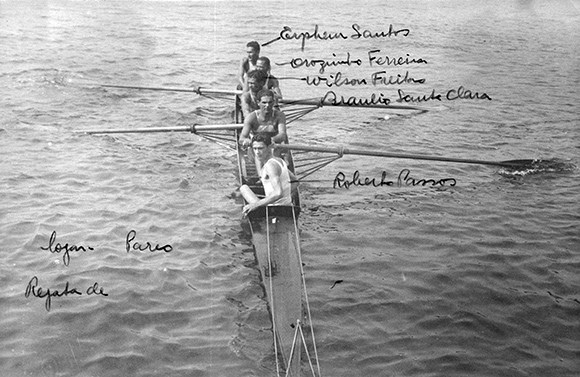 Erphem Santos
Orozinho Ferreira
Wilson Freitas
Araulio Santa Clara
Roberto Passos
logar. Pareo
Regata de